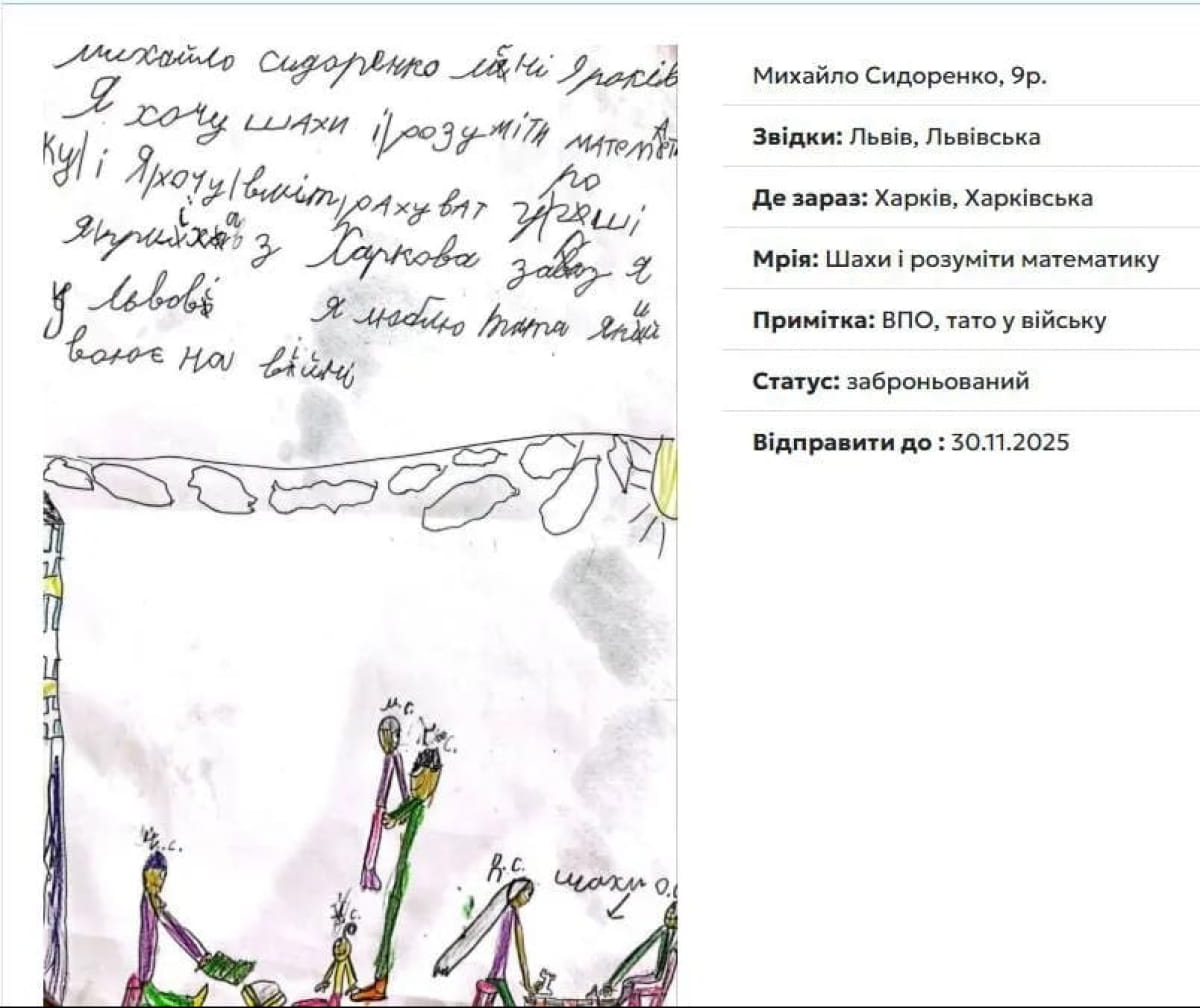 михайло сидоренко мені 9 років
Я хочу шахи і розуміти математ
ку і Я хочу вміт рахуват гроші
я приїхав з Харкова зараз я
у Львові Я люблю тата який
воює на війні
м.с.
с.
с.
с.
с.
шахи о.с
Михайло Сидоренко, 9р.
Звідки: Львів, Львівська
Де зараз: Харків, Харківська
Мрія: Шахи і розуміти математику
Примітка: ВПО, тато у війську
Статус: заброньований
Відправити до : 30.11.2025